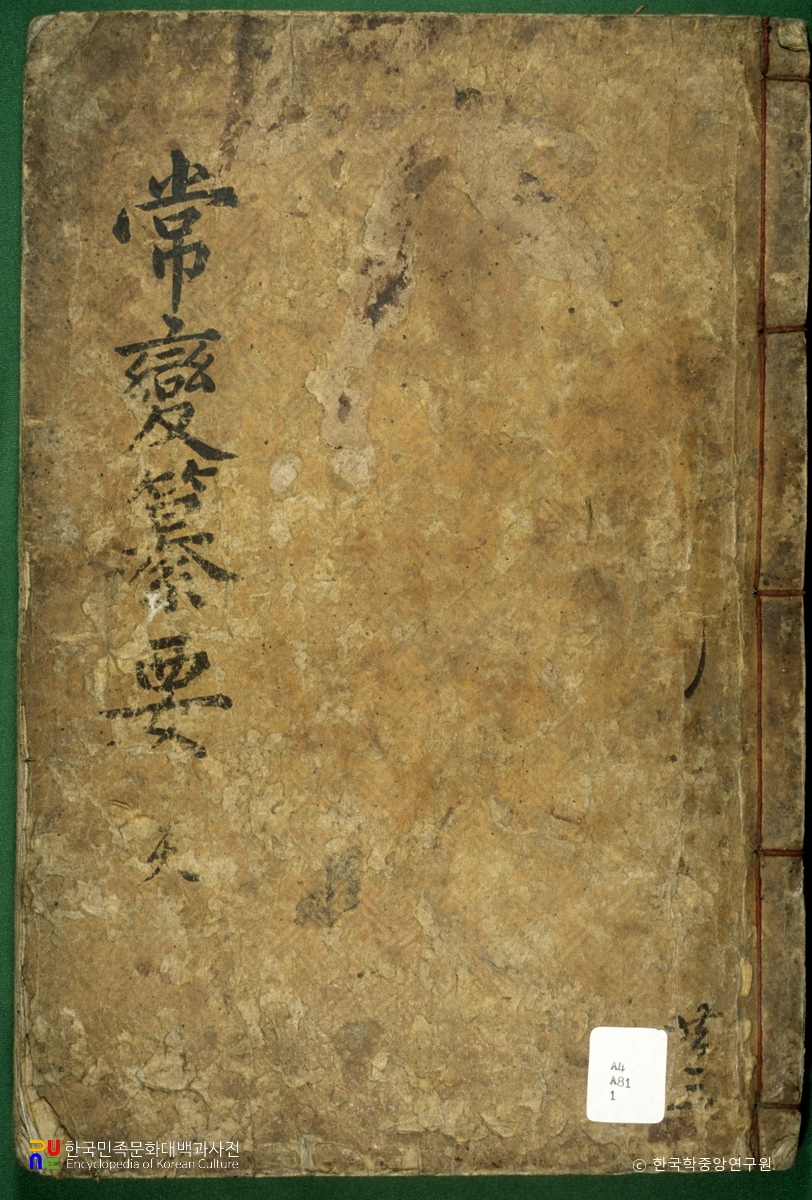 常變纂要
天
共三
A4
A81
1
한국민족문화대백과사전
Encyclopedia of Korean Culture
© 한국학중앙연구원